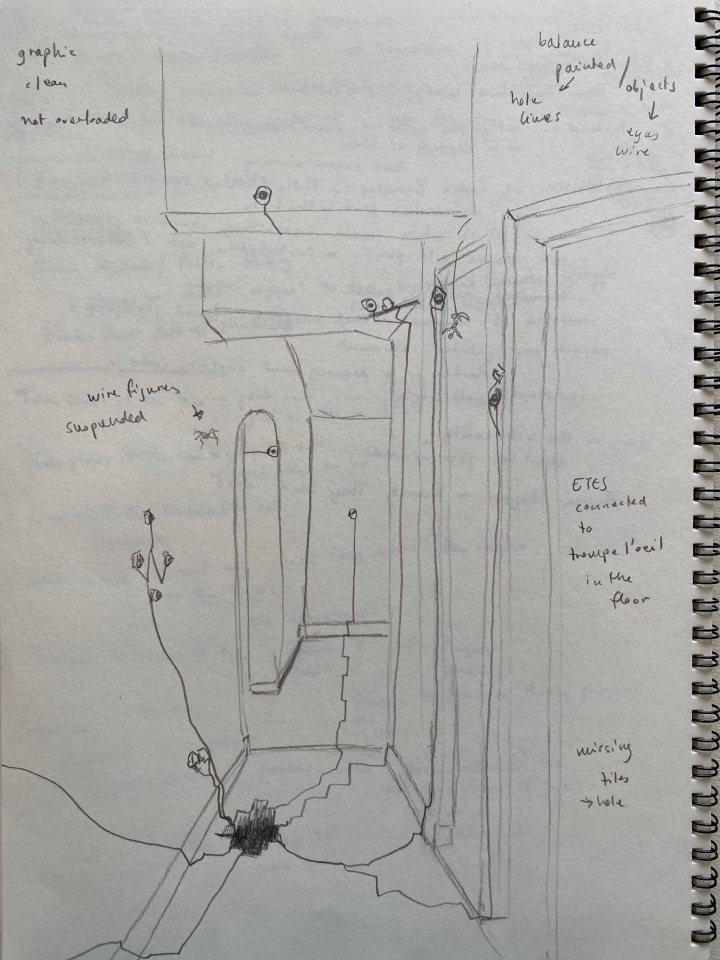 graphic
clean
not overloaded
balance
painted / objects
hole
lines
eyes
wire
wire figures
suspended
EYES
connected
to
trompe l'oeil
in the
floor
missing
tiles
→ hole